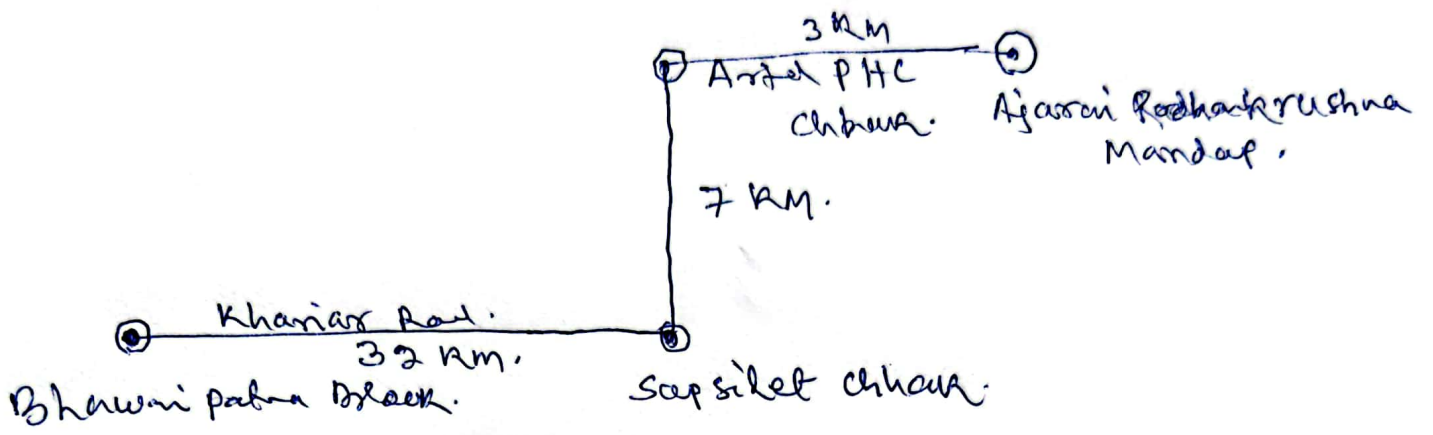 3 KM
Artal PHC
Chhauk.
Ajarai Radhakrushna
Mandap.
7 KM.
Khariar Road.
32 KM.
Bhawanipatna Block.
Sapsilet Chhauk.